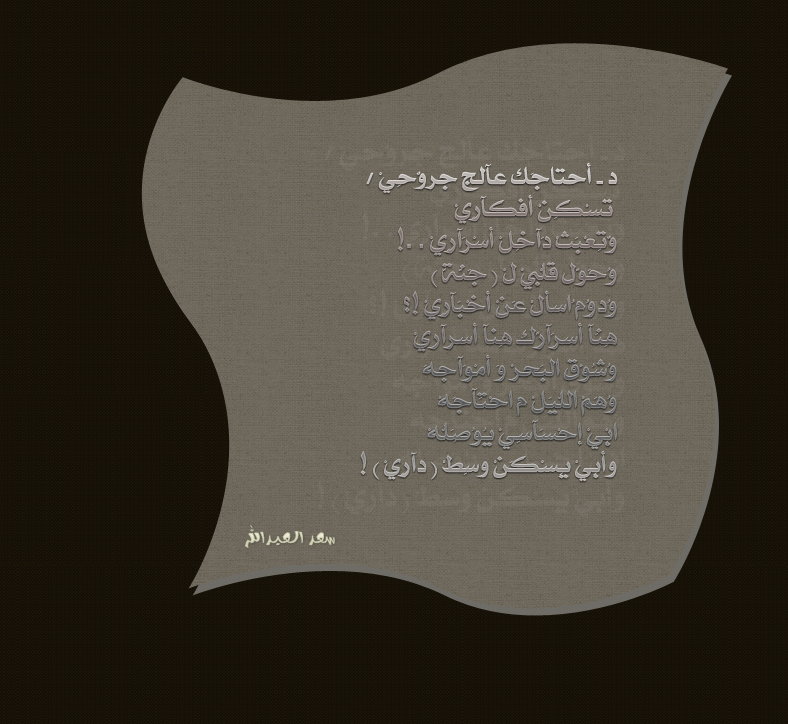 د - أحتاجك عآلج جروحي /
تسكن أفكآري
وتعبث دآخل أسرآري . . !
وحول قلبي ل ( جنة )
ودوم اسأل عن أخبآري !؟
هنآ أسرآرك هنآ أسرآري
وشوق البحر و أموآجه
وهم الليل م احتآجه
ابي إحسآسي يوصله
وأبي يسكن وسط ( دآري ) !
سعد العبدالله